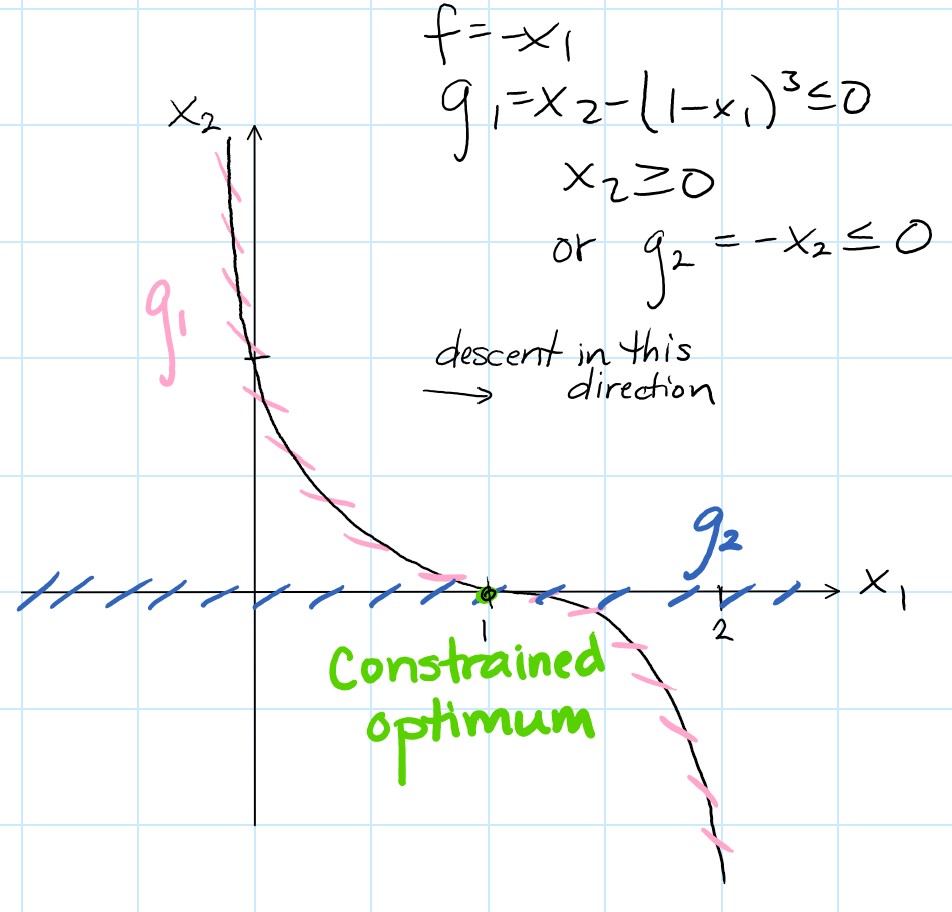 f = -x₁
g₁ = x₂ - (1-x₁)³ ≤ 0
x₂ ≥ 0
or g₂ = -x₂ ≤ 0
x₂
g₁
descent in this
→ direction
g₂
x₁
1
2
Constrained
optimum